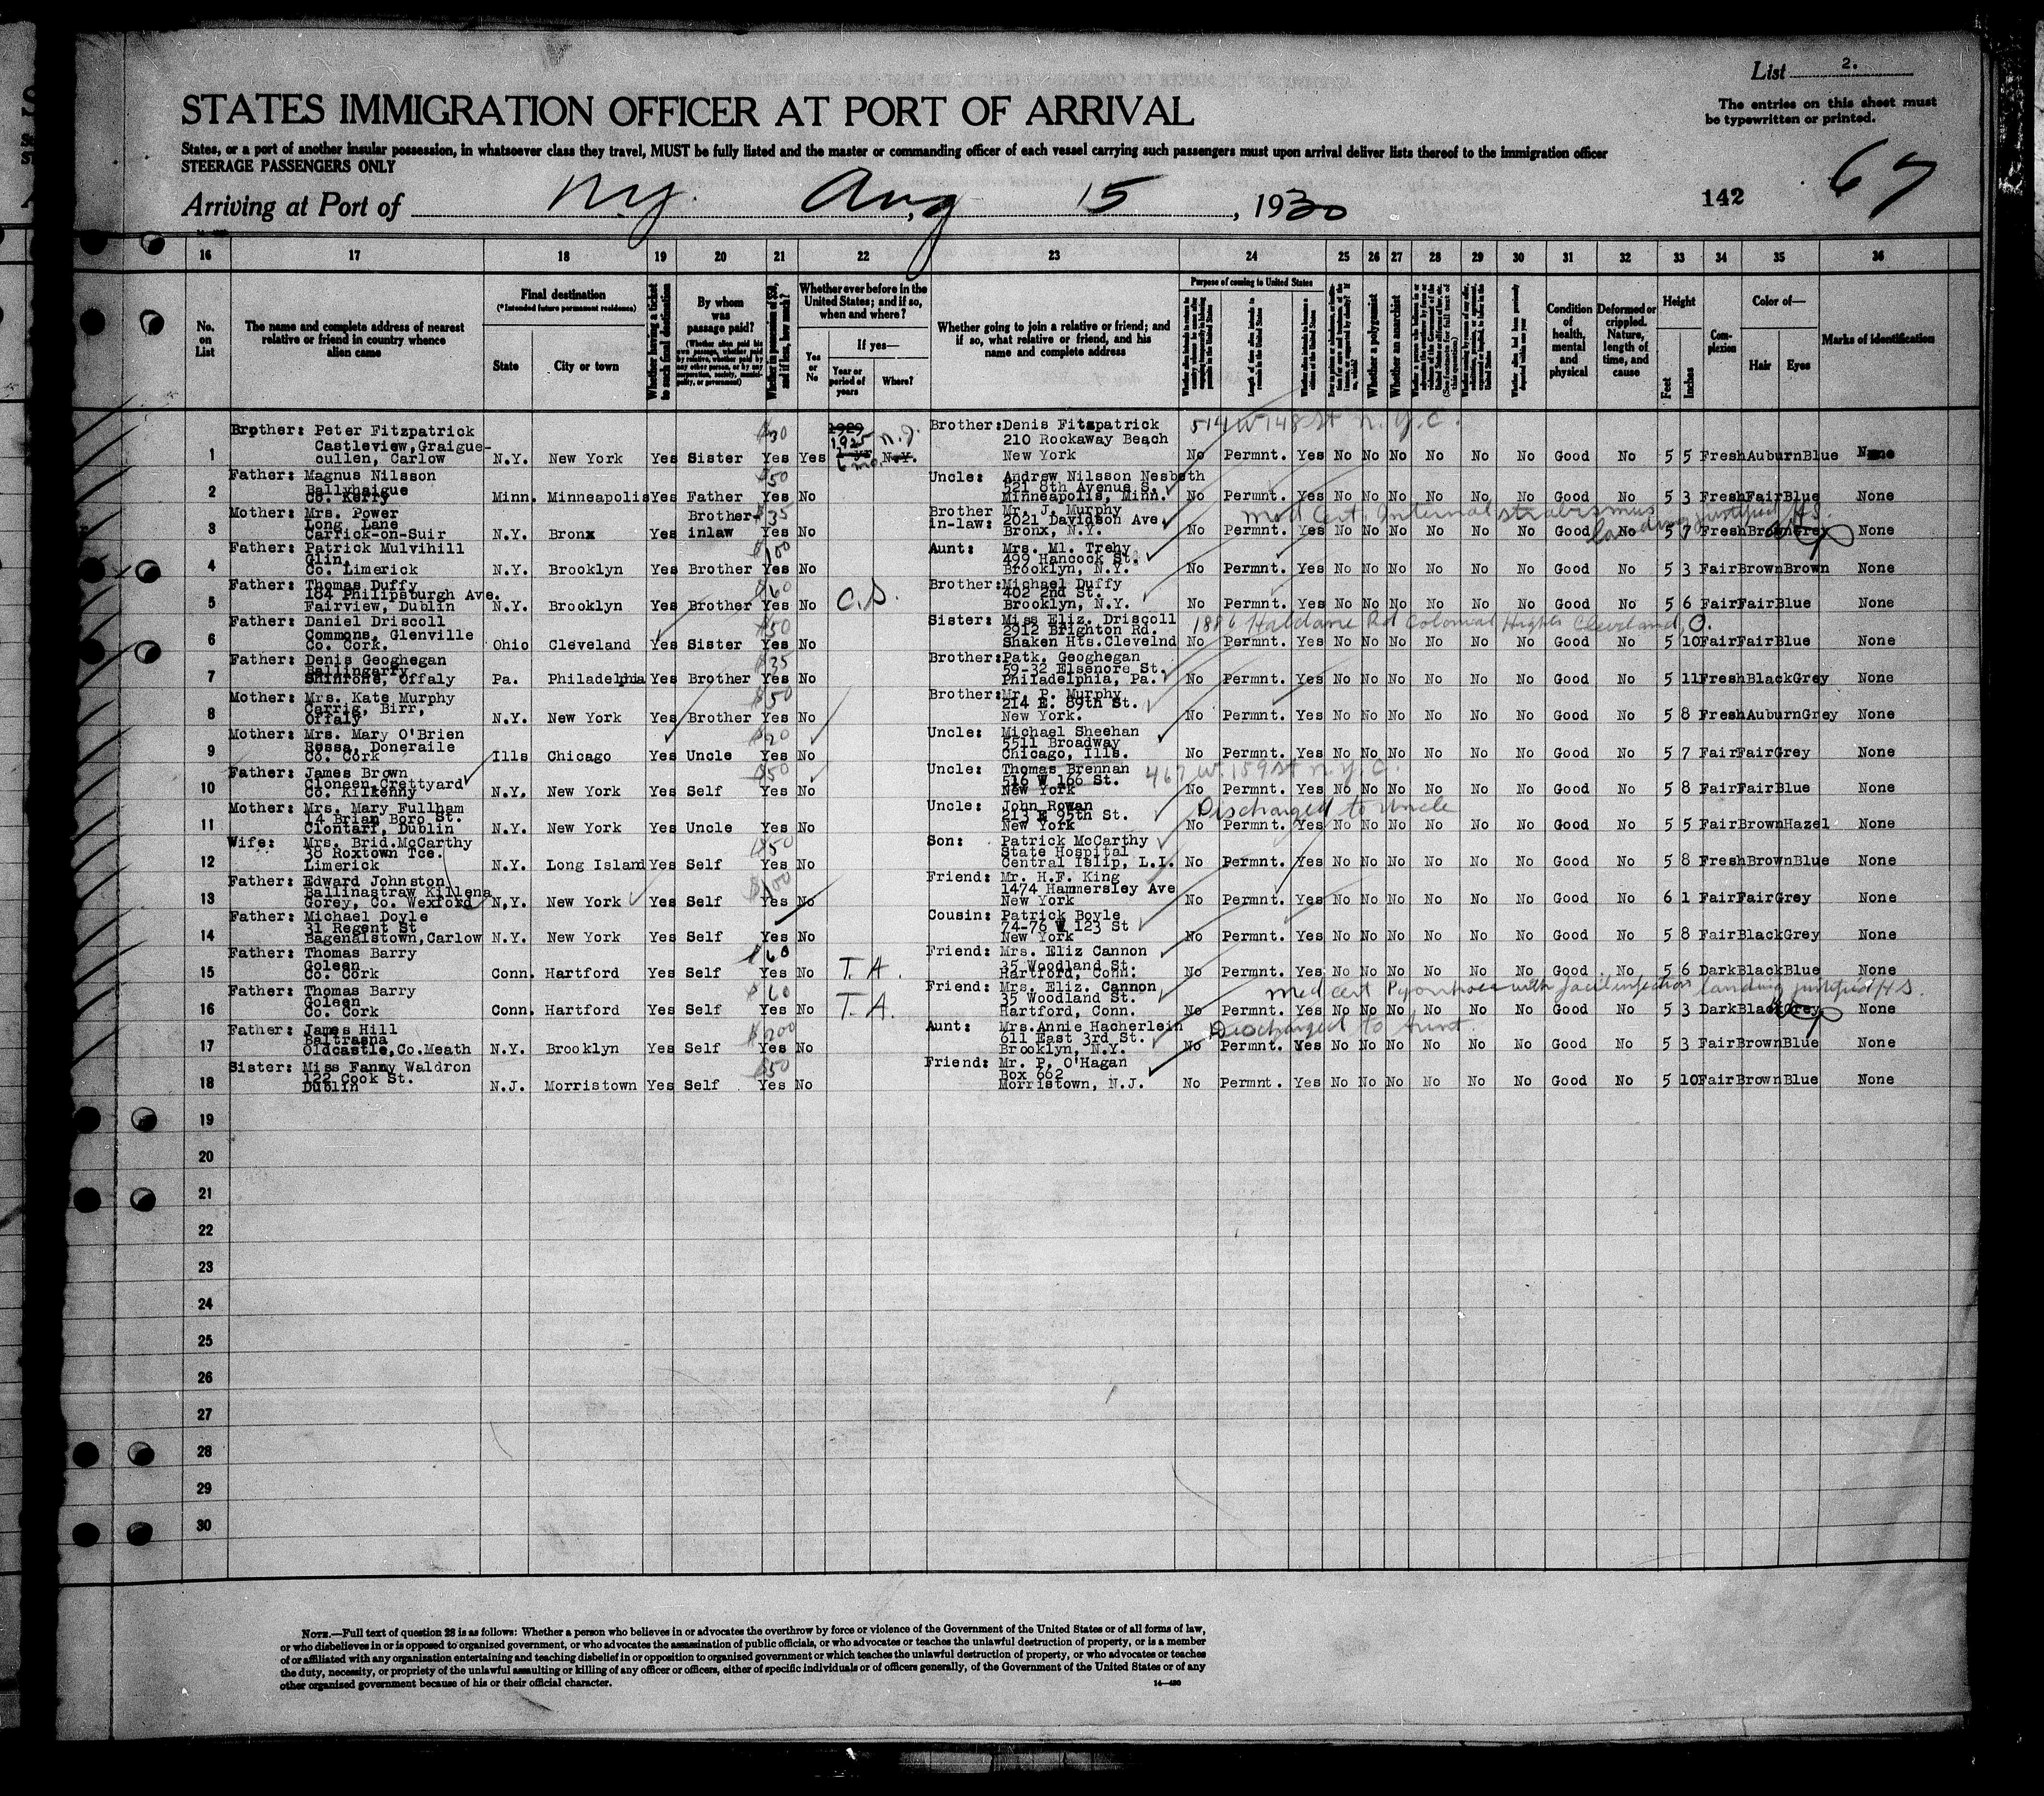 List 2.
The entries on this sheet must
be typewritten or printed.
STATES IMMIGRATION OFFICER AT PORT OF ARRIVAL
States, or a port of another insular possession, in whatsoever class they travel, MUST be fully listed and the master or commanding officer of each vessel carrying such passengers must upon arrival deliver lists thereof to the immigration officer
STEERAGE PASSENGERS ONLY
Arriving at Port of N.Y. Aug 15, 1930
142
67
16 17 18 19 20 21 22 23 24 25 26 27 28 29 30 31 32 33 34 35 36
No. on List
The name and complete address of nearest relative or friend in country whence alien came
Final destination
(*Intended future permanent residence)
State
City or town
Whether having a ticket to such final destination
By whom was passage paid?
Whether in possession of $50, and if less, how much?
Whether ever before in the United States; and if so, when and where?
Yes or No
If yes—
Year or period of years
Where?
Whether going to join a relative or friend; and if so, what relative or friend, and his name and complete address
Purpose of coming to United States
Whether a polygamist
Whether an anarchist
Condition of health, mental and physical
Deformed or crippled. Nature, length of time, and cause
Height
Feet
Inches
Complexion
Color of—
Hair
Eyes
Marks of identification
1 Brother: Peter Fitzpatrick Castleview,Graigue-cullen, Carlow N.Y. New York Yes Sister $30 Yes Yes 1929 1925 6 mo. N.J. N.Y. Brother: Denis Fitzpatrick 210 Rockaway Beach New York 514 W 148 St N.Y.C. No Permnt. Yes No No No No No No Good No 5 5 Fresh Auburn Blue None
2 Father: Magnus Nilsson Ballyhaigue Co. Kerry Minn. Minneapolis Yes Father $50 Yes No Uncle: Andrew Nilsson Nesbeth 521 8th Avenue S. Minneapolis, Minn. No Permnt. Yes No No No No No No Good No 5 3 Fresh Fair Blue None
3 Mother: Mrs. Power Long Lane Carrick-on-Suir N.Y. Bronx Yes Brother-inlaw $35 Yes No Brother in-law: Mr. J. Murphy 2021 Davidson Ave. Bronx, N.Y. Med Cert. Internal strabismus landing justified H.S. No Permnt. Yes No No No No No No Good No 5 7 Fresh Brown Grey None
4 Father: Patrick Mulvihill Glin, Co. Limerick N.Y. Brooklyn Yes Brother $100 Yes No Aunt: Mrs. Ml. Trehy 499 Hancock St. Brooklyn, N.Y. No Permnt. Yes No No No No No No Good No 5 3 Fair Brown Brown None
5 Father: Thomas Duffy 184 Philipsburgh Ave. Fairview, Dublin N.Y. Brooklyn Yes Brother $60 Yes No C.S. Brother: Michael Duffy 402 2nd St. Brooklyn, N.Y. No Permnt. Yes No No No No No No Good No 5 6 Fair Fair Blue None
6 Father: Daniel Driscoll Commons, Glenville Co. Cork. Ohio Cleveland Yes Sister $50 Yes No Sister: Miss Eliz. Driscoll 2912 Brighton Rd. Shaken Hts.Clevelnd 1886 Haldane Rd Colonial Hights Cleveland, O. No Permnt. Yes No No No No No No Good No 5 10 Fair Fair Blue None
7 Father: Denis Geoghegan Ballingarry Shinrone, Offaly Pa. Philadelphia Yes Brother $35 Yes No Brother: Patk. Geoghegan 59-32 Elsenore St. Philadelphia, Pa. No Permnt. Yes No No No No No No Good No 5 11 Fresh Black Grey None
8 Mother: Mrs. Kate Murphy Carrig, Birr, Offaly N.Y. New York Yes Brother $50 Yes No Brother: Mr. P. Murphy 214 E. 89th St. New York. No Permnt. Yes No No No No No No Good No 5 8 Fresh Auburn Grey None
9 Mother: Mrs. Mary O'Brien Rossa, Doneraile Co. Cork Ills Chicago Yes Uncle $20 Yes No Uncle: Michael Sheehan 5511 Broadway Chicago, Ills. No Permnt. Yes No No No No No No Good No 5 7 Fair Fair Grey None
10 Father: James Brown Cloneen Crettyard Co. Kilkenny N.Y. New York Yes Self $50 Yes No Uncle: Thomas Brennan 516 W 166 St. New York 467 W. 159 St N.Y.C. No Permnt. Yes No No No No No No Good No 5 8 Fair Fair Blue None
11 Mother: Mrs. Mary Fullham 14 Brian Boro St. Clontarf, Dublin N.Y. New York Yes Uncle Yes No Uncle: John Rowan 213 E 95th St. New York Discharged to Uncle No Permnt. Yes No No No No No No Good No 5 5 Fair Brown Hazel None
12 Wife: Mrs. Brid.McCarthy 38 Roxtown Tce. Limerick N.Y. Long Island Yes Self $50 Yes No Son: Patrick McCarthy State Hospital Central Islip, L.I. No Permnt. Yes No No No No No No Good No 5 8 Fresh Brown Blue None
13 Father: Edward Johnston Ballinastraw Killena Gorey, Co. Wexford N.Y. New York Yes Self $100 Yes No Friend: Mr. H.F. King 1474 Hammersley Ave New York No Permnt. Yes No No No No No No Good No 6 1 Fair Fair Grey None
14 Father: Michael Doyle 31 Regent St Bagenalstown,Carlow N.Y. New York Yes Self Yes No Cousin: Patrick Boyle 74-76 W 123 St New York No Permnt. Yes No No No No No No Good No 5 8 Fair Black Grey None
15 Father: Thomas Barry Goleen Co. Cork Conn. Hartford Yes Self $60 Yes No T.A. Friend: Mrs. Eliz Cannon 35 Woodland St. Hartford, Conn. No Permnt. Yes No No No No No No Good No 5 6 Dark Black Blue None
16 Father: Thomas Barry Goleen Co. Cork Conn. Hartford Yes Self $60 Yes No T.A. Friend: Mrs. Eliz. Cannon 35 Woodland St. Hartford, Conn. Med cert Pyorrhoea with landing justified H S. No Permnt. Yes No No No No No No Good No 5 3 Dark Black Grey None
17 Father: James Hill Baltrasna Oldcastle,Co.Meath N.Y. Brooklyn Yes Self $200 Yes No Aunt: Mrs.Annie Hacherlein 611 East 3rd St. Brooklyn, N.Y. Discharged to Aunt. No Permnt. Yes No No No No No No Good No 5 3 Fair Brown Blue None
18 Sister: Miss Fanny Waldron 122 Cook St. Dublin N.J. Morristown Yes Self $50 Yes No Friend: Mr. P. O'Hagan Box 662 Morristown, N.J. No Permnt. Yes No No No No No No Good No 5 10 Fair Brown Blue None
19
20
21
22
23
24
25
26
27
28
29
30
NOTE.—Full text of question 28 is as follows: Whether a person who believes in or advocates the overthrow by force or violence of the Government of the United States or of all forms of law,
or who disbelieves in or is opposed to organized government, or who advocates the assassination of public officials, or who advocates or teaches the unlawful destruction of property, or is a member
of or affiliated with any organization entertaining and teaching disbelief in or opposition to organised government or which teaches the unlawful destruction of property, or who advocates or teaches
the duty, necessity, or propriety of the unlawful assaulting or killing of any officer or officers, either of specific individuals or of officers generally, of the Government of the United States or of any
other organised government because of his or their official character.
14—430